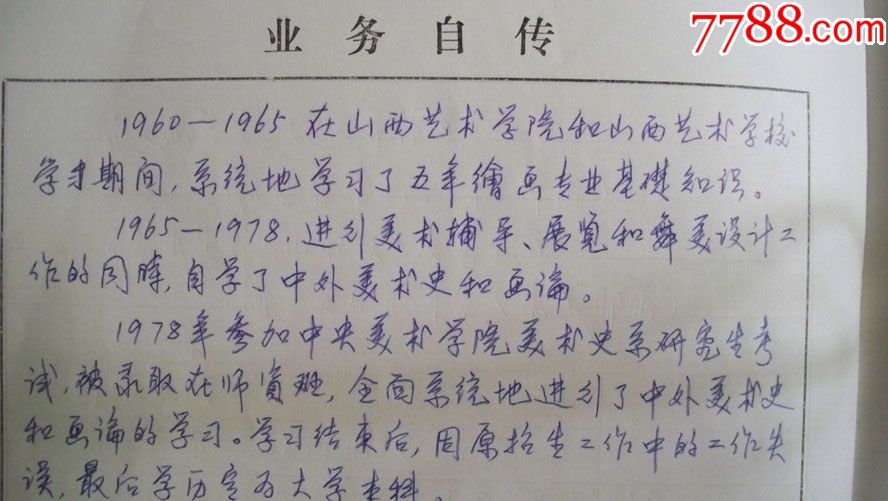 7788.com
业务自传
1960—1965 在山西艺术学院和山西艺术学校
学习期间,系统地学习了五年繪画专业基礎知识。
1965—1978,进行美术辅导、展览和舞美设计工
作的同時,自学了中外美术史和画論。
1978年参加中央美术学院美术史系研究生考
试,被录取在师資班,全面系统地进行了中外美术史
和画論的学习。学习结束后,因原招生工作中的工作失
误,最后学历定为大学本科。